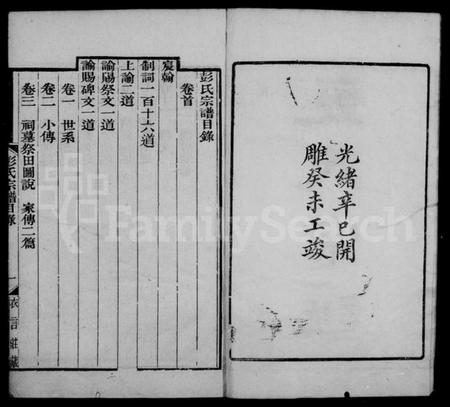 光緒辛巳開
雕癸未工竣
彭氏宗譜目錄
卷首
宸翰
制詞一百十六道
上諭二道
諭賜祭文一道
諭賜碑文一道
卷一 世系
卷二 小傳
卷三 祠墓祭田圖說 家傳二篇
彭氏宗譜目錄
一
衣言莊藏
FamilySearch